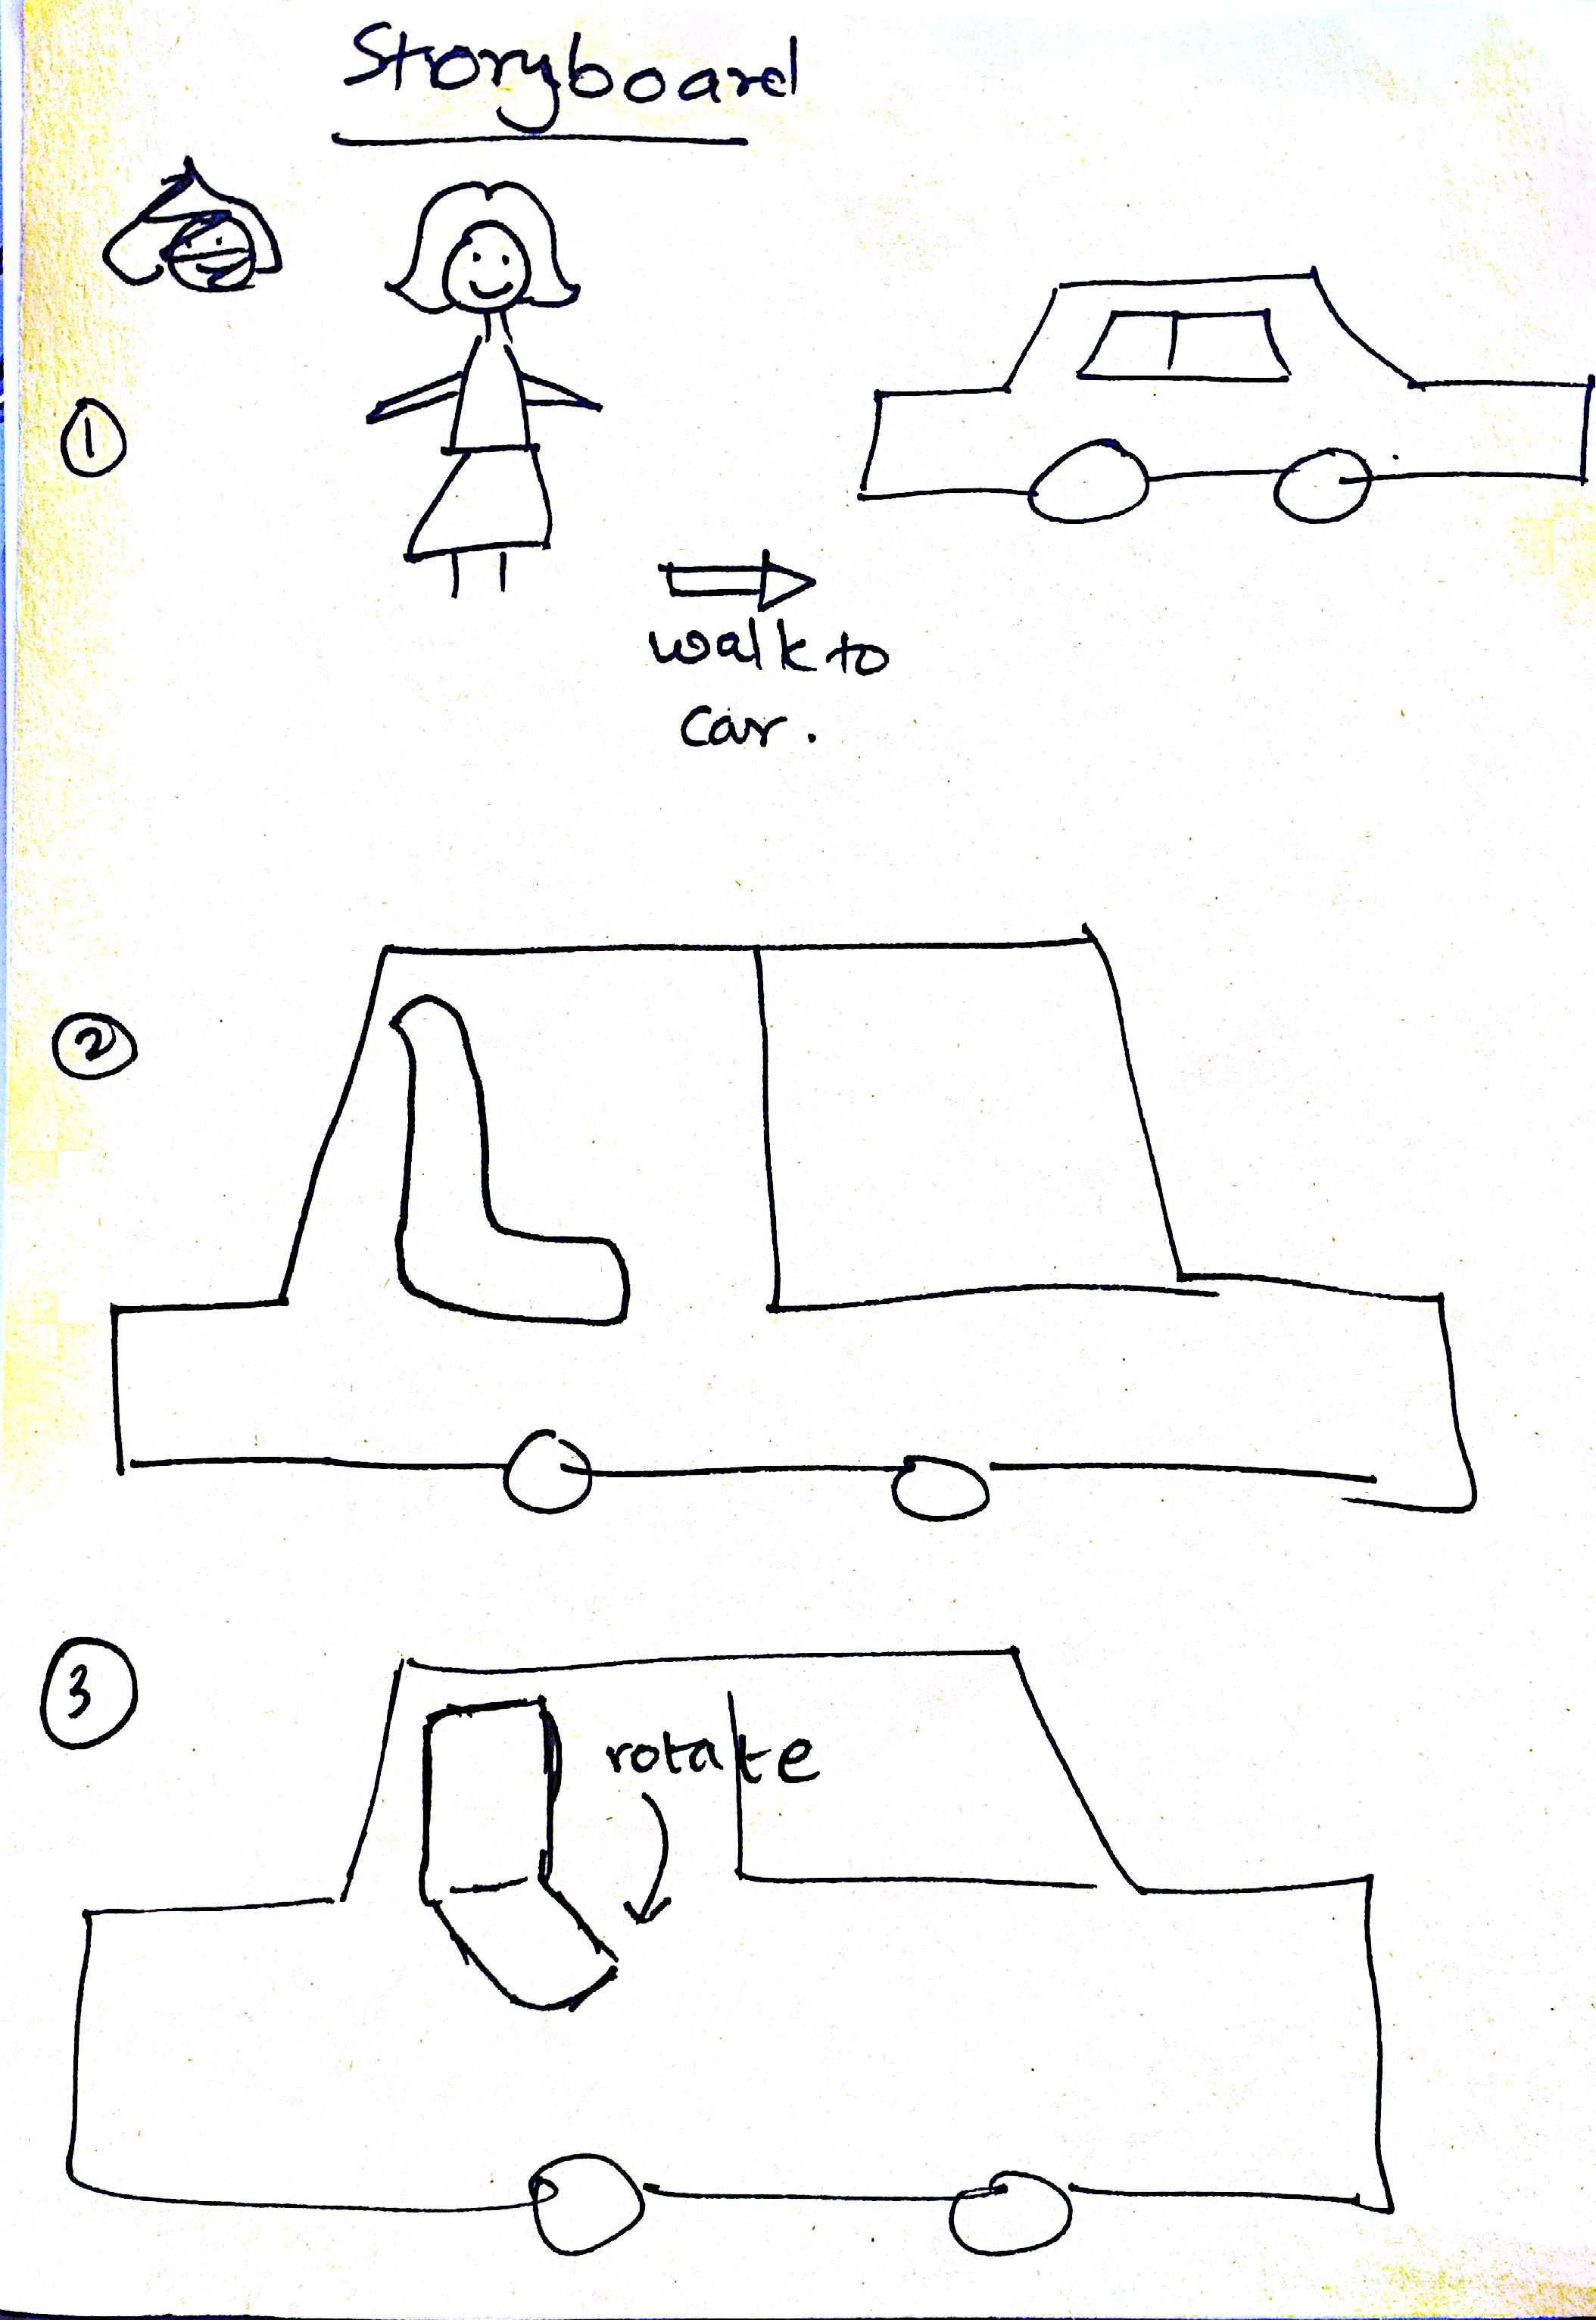 Storyboard
1
walk to
car.
2
3
rotate